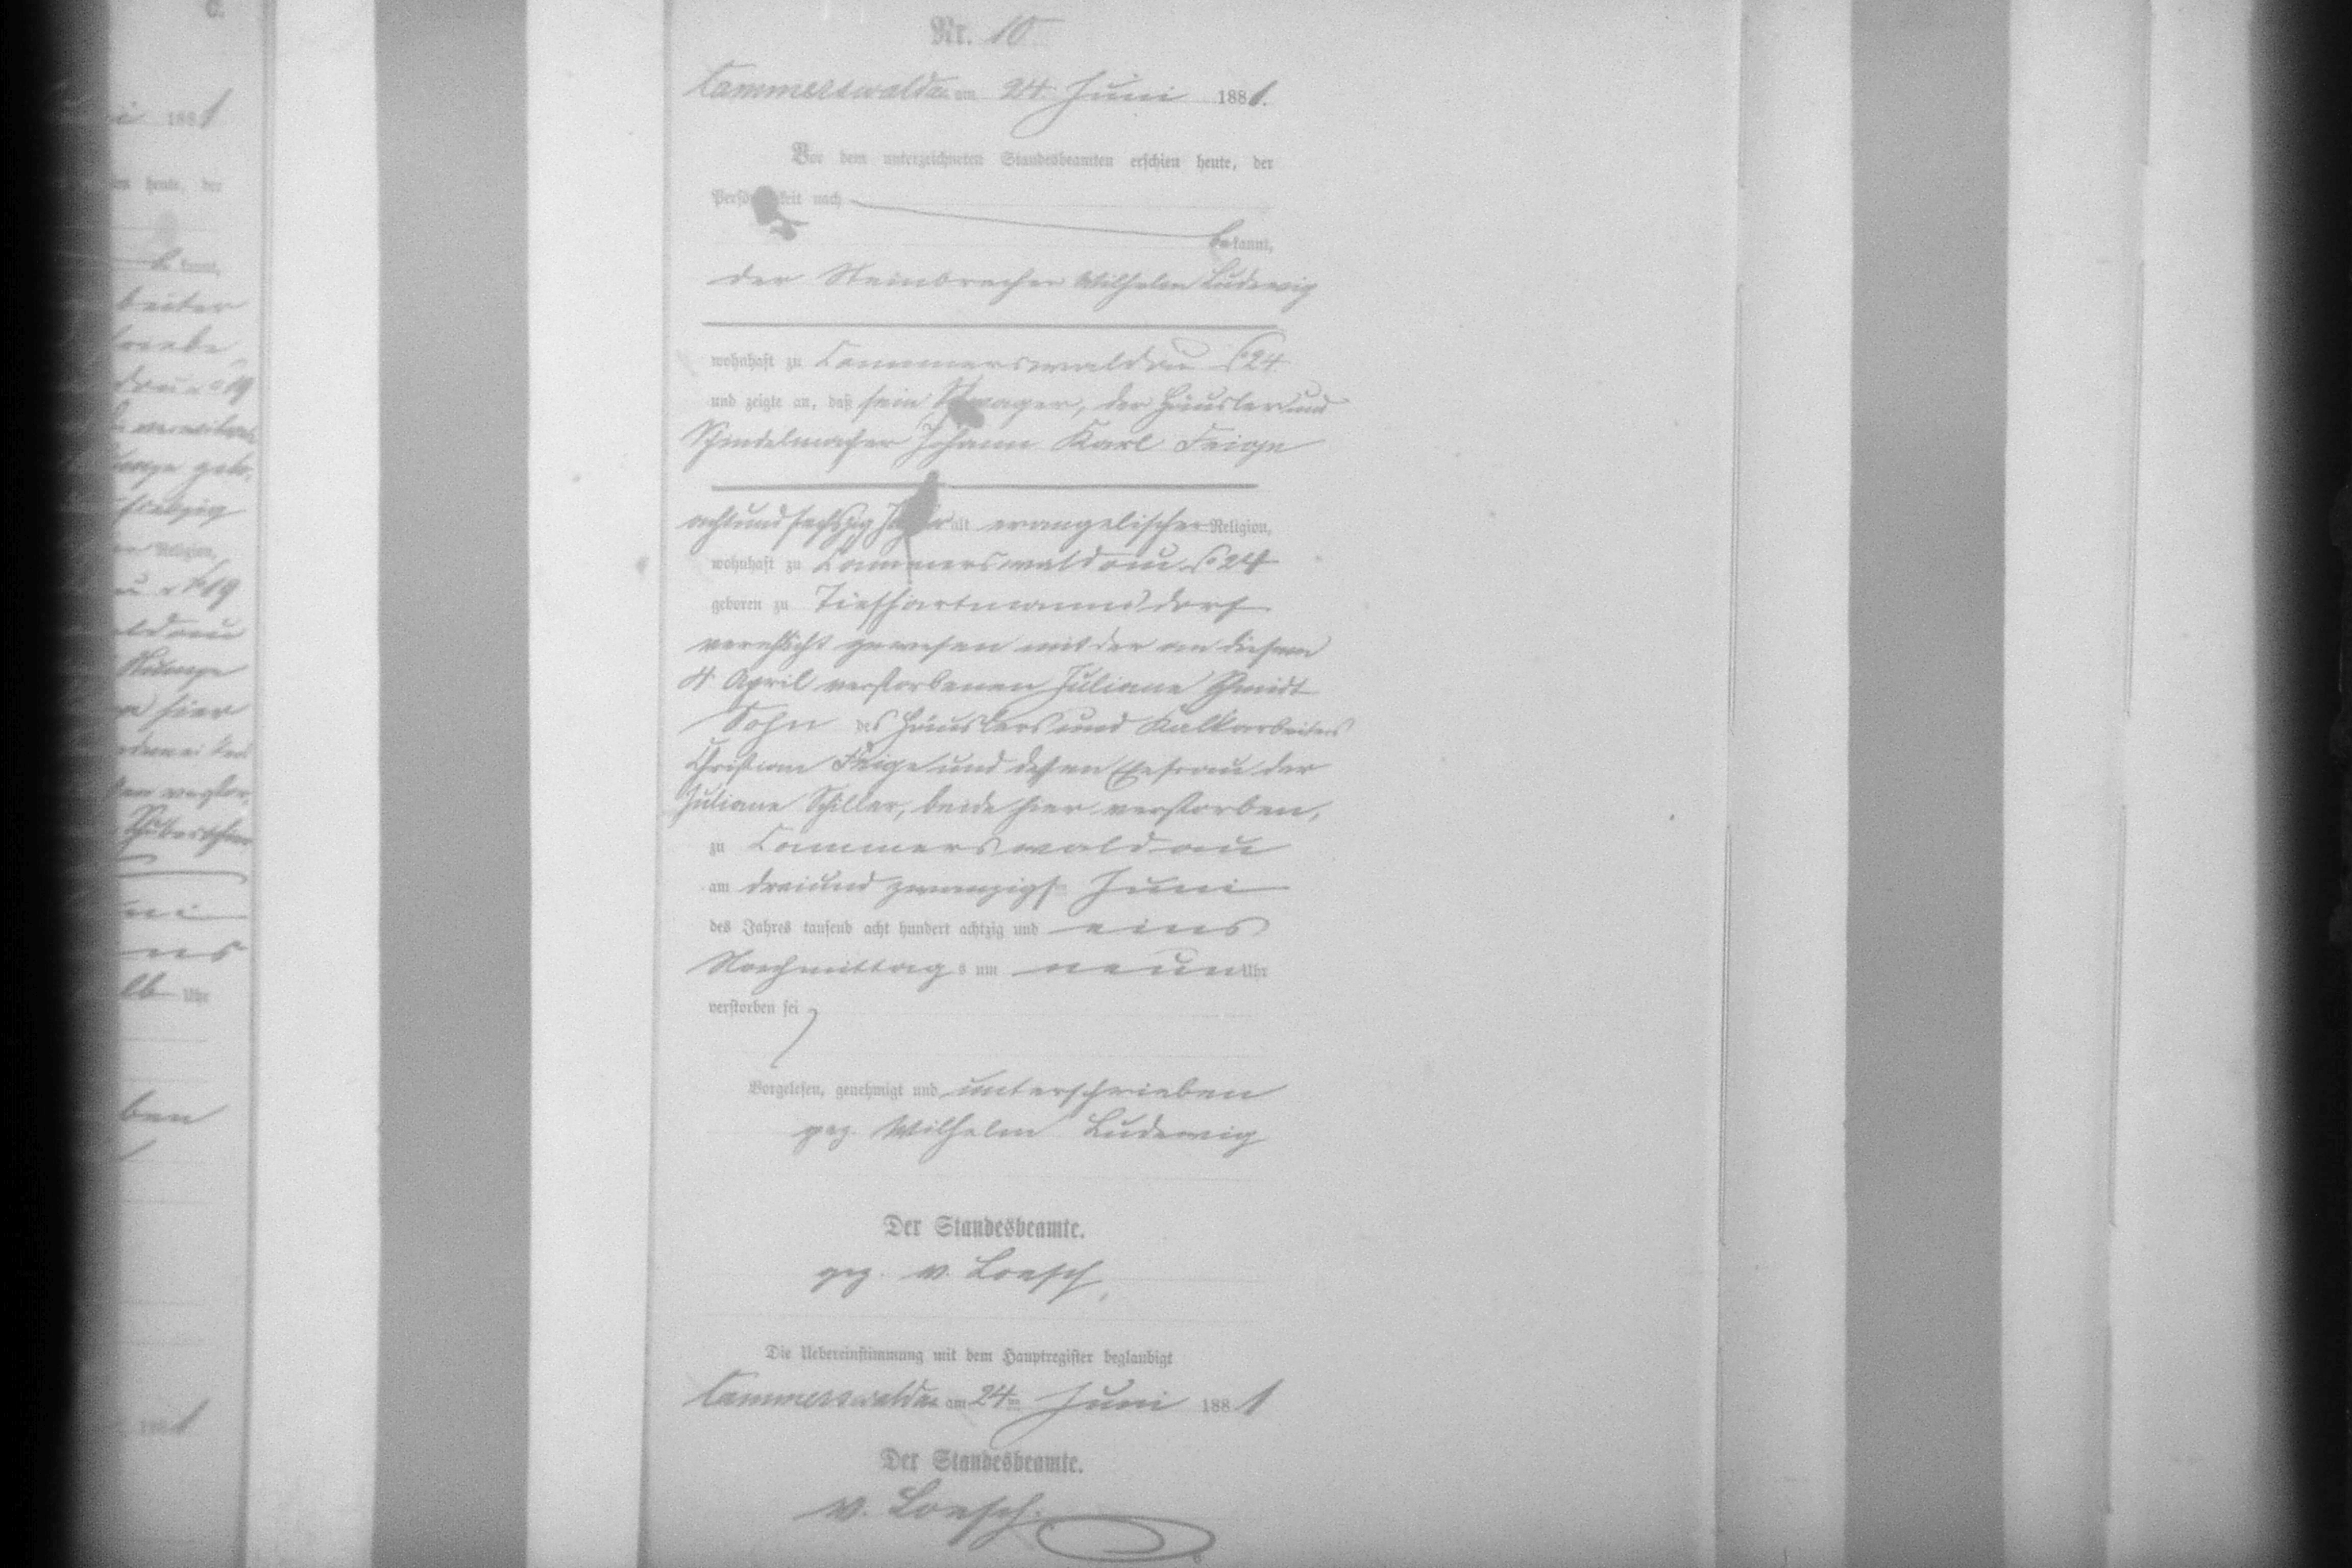 Nr. 10
Cammerswaldau am 24. Juni 1881.
Vor dem unterzeichneten Standesbeamten erschien heute, der
Persönlichkeit nach
bekannt,
der Steinbrecher Wilhelm Ludewig
wohnhaft zu Cammerswaldau No 24
und zeigte an, daß sein Schwager, der Häusler und
Schindelmacher Johann Karl Feige
achtundsechszig Jahre alt evangelischer Religion,
wohnhaft zu Cammerswaldau No 24
geboren zu Tiefhartmannsdorf
verehlicht gewesen mit der am diesem
4 April verstorbenen Juliane Schmidt
Sohn des Häuslers und Kalkarbeiters
Christian Feige und dessen Ehefrau der
Juliane Schiller, beide hier verstorben,
zu Cammerswaldau
am dreiund zwanzigst Juni
des Jahres tausend acht hundert achtzig und eins
Nachmittags um neun Uhr
verstorben sei
Vorgelesen, genehmigt und unterschrieben
gez. Wilhelm Ludewig
Der Standesbeamte.
gez. v. Loesch,
Die Uebereinstimmung mit dem Hauptregister beglaubigt
Cammerswaldau am 24ten Juni 1881
Der Standesbeamte.
v. Loesch.